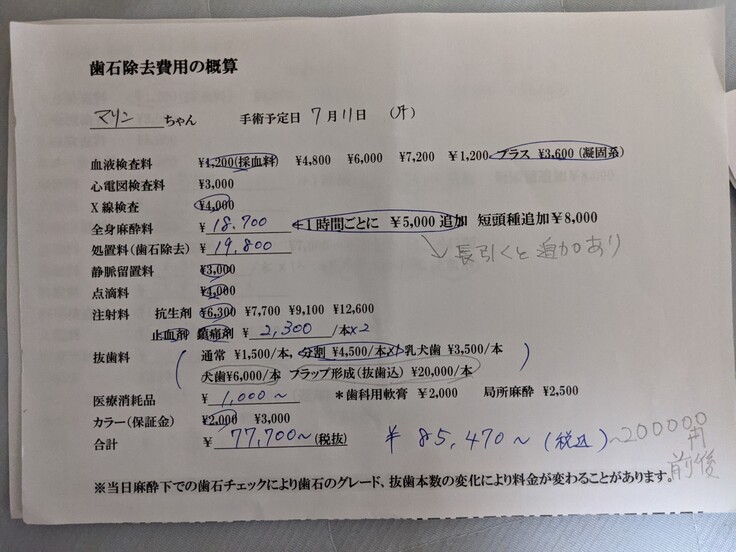 歯石除去費用の概算
マリン ちゃん 手術予定日 7月11日 (月)
血液検査料 ¥1,200(採血料) ¥4,800 ¥6,000 ¥7,200 ¥1,200 プラス ¥3,600(凝固系)
心電図検査料 ¥3,000
X線検査 ¥4,000
全身麻酔料 ¥ 18.700 +1時間ごとに ¥5,000 追加 短頭種追加¥8,000
処置料(歯石除去) ¥ 19,800 ↘長引くと追加あり
静脈留置料 ¥3,000
点滴料 ¥4,000
注射料 抗生剤 ¥6,300 ¥7,700 ¥9,100 ¥12,600
止血剤 鎮痛剤 ¥ 2,300 /本×2
抜歯料 通常 ¥1,500/本, 分割 ¥4,500/本×1 乳犬歯 ¥3,500/本
犬歯¥6,000/本 フラップ形成(抜歯込) ¥20,000/本
医療消耗品 ¥ 1,000〜 *歯科用軟膏 ¥2,000 局所麻酔 ¥2,500
カラー(保証金) ¥2,000 ¥3,000
合計 ¥ 77,700〜(税抜) ¥ 85,470〜(税込)〜200000円前後
※当日麻酔下での歯石チェックにより歯石のグレード、抜歯本数の変化により料金が変わることがあります。